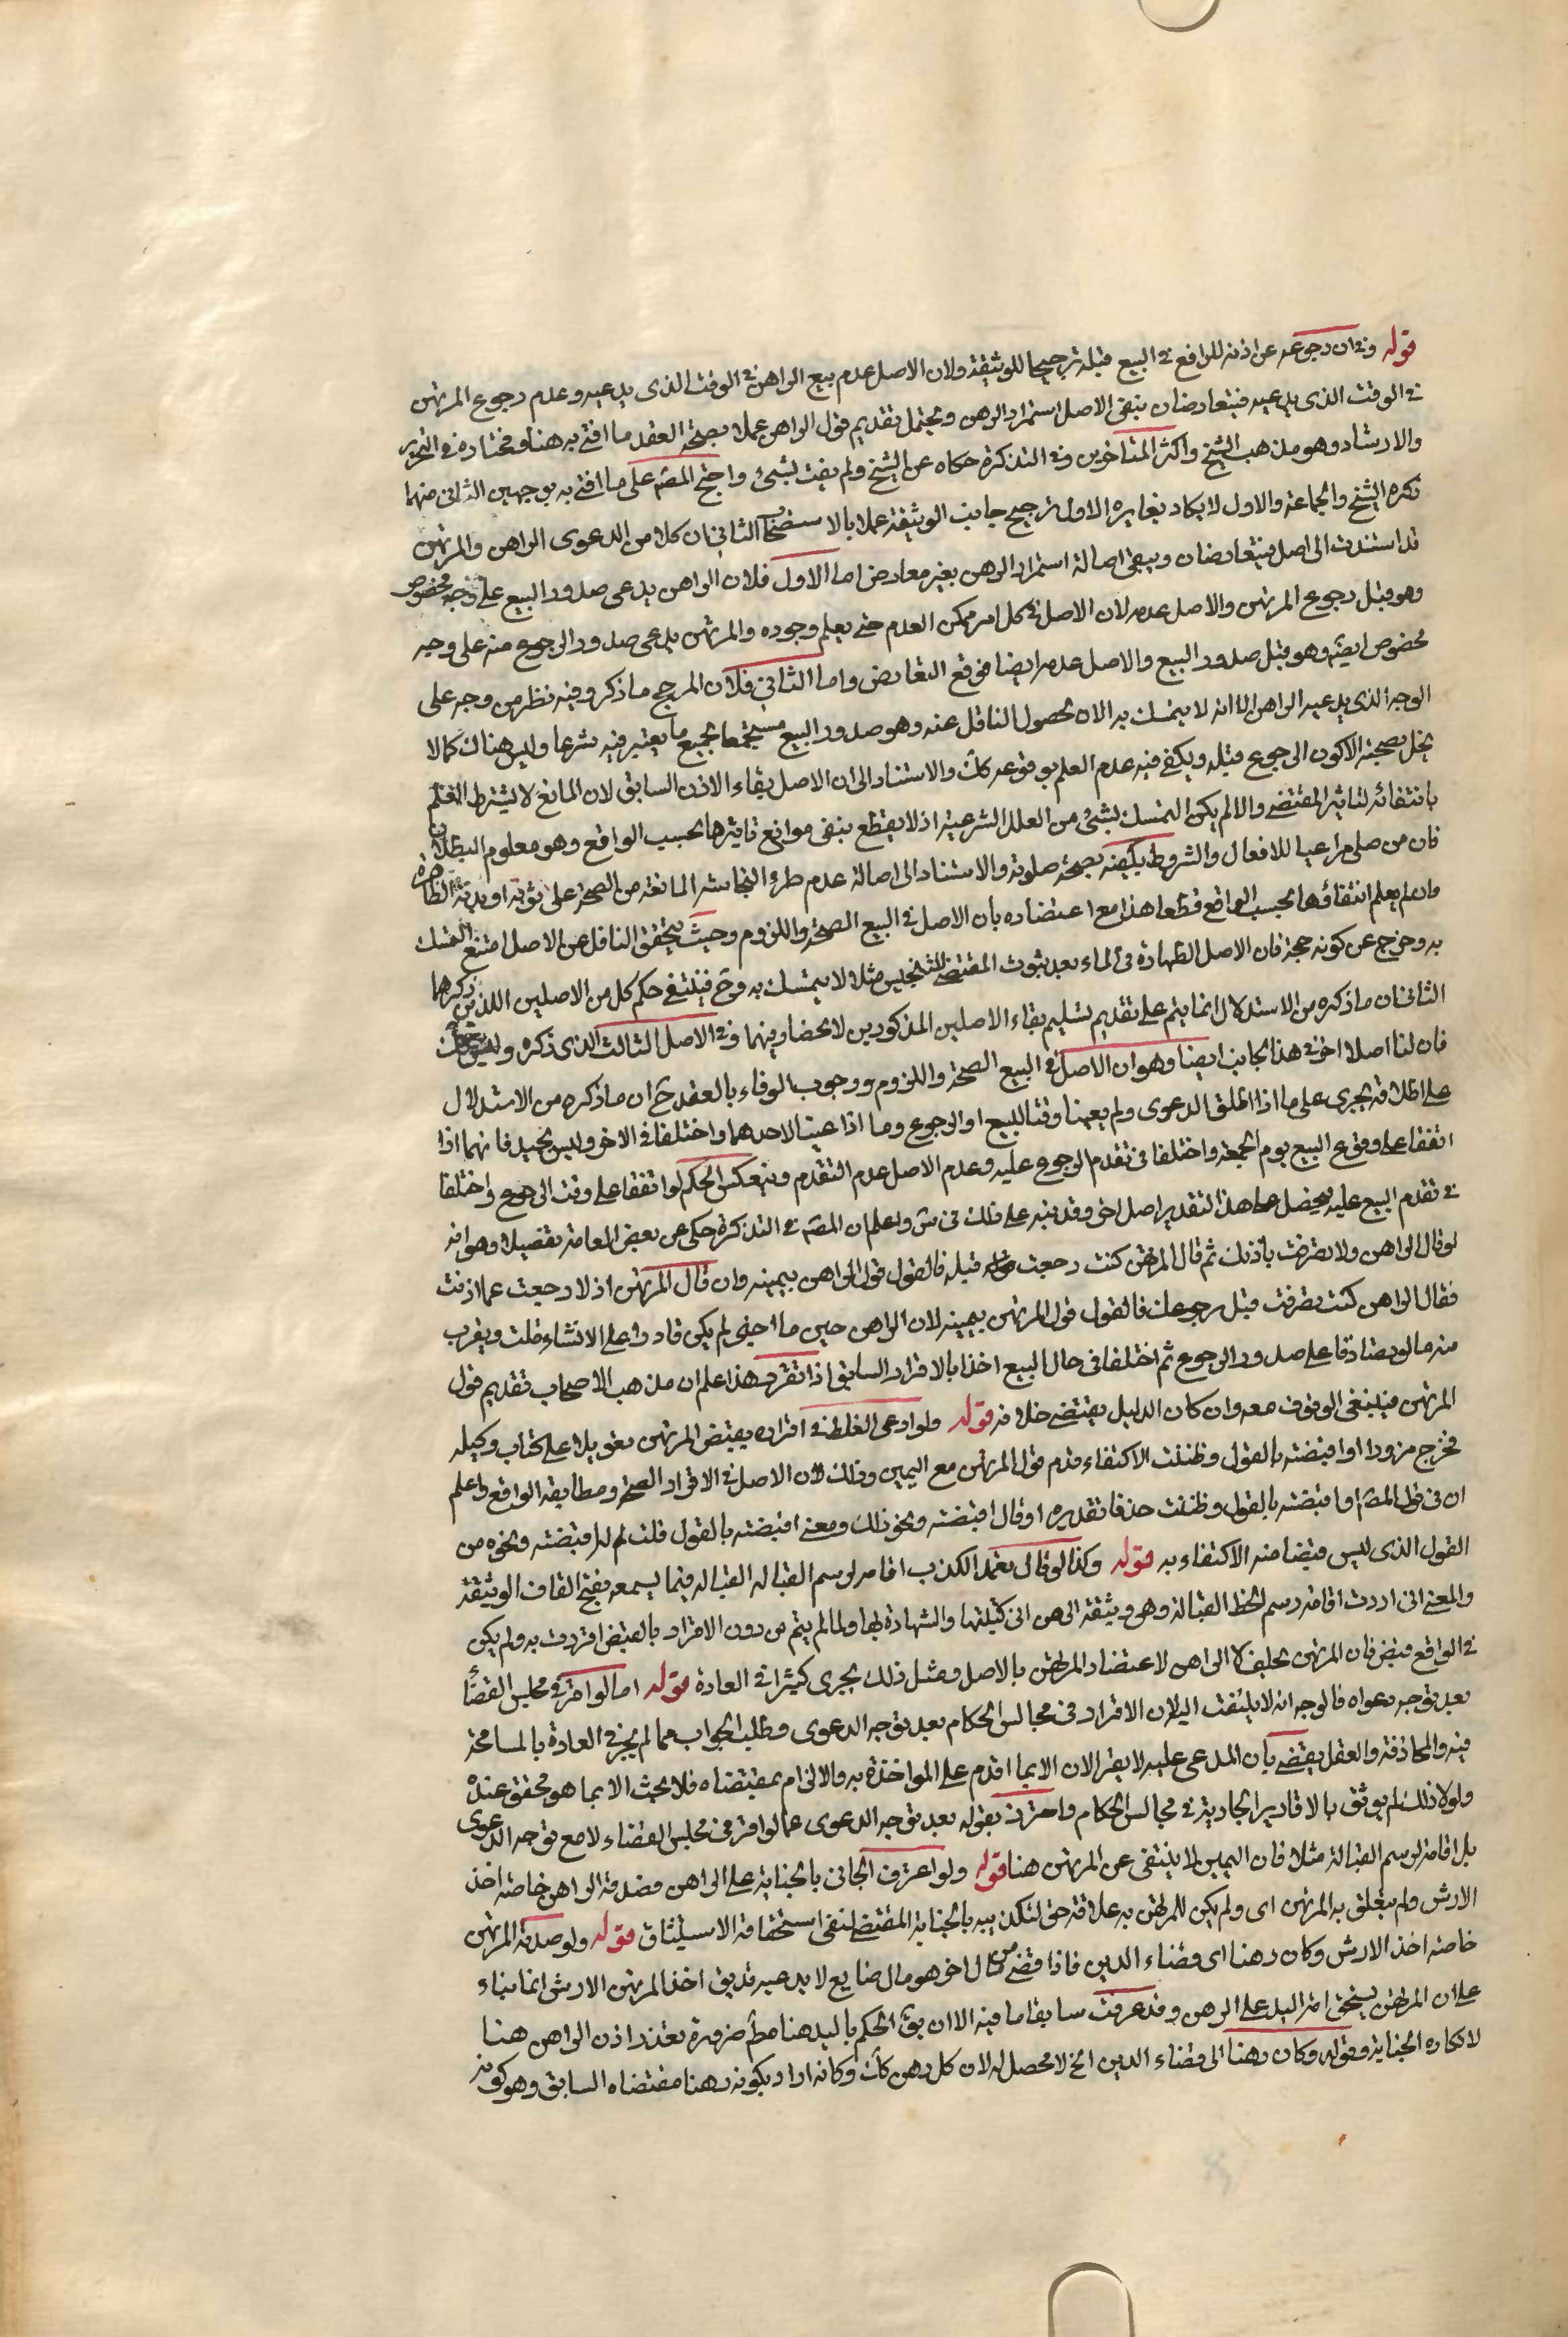 قوله وفي ان رجوعه عن اذنه للراهن في البيع قبله ترجيحا للوثيقة ولان الاصل عدم بيع الراهن في الوقت الذى يدعيه وعدم رجوع المرتهن
في الوقت الذى يدعيه فيتعارضان يبقى الاصل استمرار الرهن ويحتمل تقديم قول الراهن عملا بصحة العقد ما افتى به هنا ومختاره في التحرير
والارشاد وهو مذهب الشيخ واكثر المتاخرين وفي التذكرة حكاه عن الشيخ ولم يفت بشئ واحتج المصـ على ما افتى به بوجهين الثانى منهما
ذكره الشيخ والجماعة والاول لا يكاد يغايره الاول ترجيح جانب الوثيقة عملا بالاستصحاب الثاني ان كلا من الدعوى الراهن والمرتهن
قد استندت الى اصل فيتعارضان ويبقى اصالة استمرار الرهن بغير معارض اما الاول فلان الراهن يدعى صدور البيع على وجه مخصوص
وهو قبل رجوع المرتهن والاصل عدمه لان الاصل في كل امر ممكن العدم حتى يعلم وجوده والمرتهن يدعى صدور الرجوع منه على وجه
مخصوص ايضا وهو قبل صدور البيع والاصل عدمه ايضا فوقع التعارض واما الثانى فلان المرجح ما ذكر وفيه نظر من وجه على
الوجه الذى يدعيه الراهن الا انه لا يتمسك به الان لحصول الناقل عنه وهو صدور البيع مستجمعا لجميع ما يعتبر فيه شرعا وليس هناك كمالا
يخل بصحته الا كون الرجوع قبله ويكفى فيه عدم العلم بوقوعه كك والاستناد الى ان الاصل بقاء الاذن السابق لان المانع لا يشترط العلم
بانتفائه لتاثير المقتضى والا لم يكن التمسك بشئ من العلل الشرعية اذ لا يقطع بنفى موانع تاثيرها بحسب الواقع وهو معلوم البطلان
فان من صلى مراعيا للافعال والشروط يكفيه بصحة صلوته والاستناد الى اصالة عدم طرؤ النجاسة المانعة من الصحة على ثوبه او بدنه الظاهرة
وان لم يعلم انتفائها بحسب الواقع قطعا هذا مع اعتضاده بان الاصل في البيع الصحة واللزوم وحيث يتحقق الناقل عن الاصل امتنع التمسك
به وخرج عن كونه حجة فان الاصل الطهارة في الماء بعد ثبوت المقتضى للتنجيس مثلا لا يتمسك به وح فينتفى حكم كل من الاصلين اللذين ذكرهما
الثانى ان ما ذكره من الاستدلال انما يتم على تقديم تسليم بقاء الاصلين المذكورين لا نحصا وفيهما وفي الاصل الثالث الذى ذكره وليس كك
فان لنا اصلا اخر في هذا الجانب ايضا وهو ان الاصل في البيع الصحة واللزوم ووجوب الوفاء بالعقد ح ان ما ذكره من الاستدلال
على اطلاقه يجرى على ما اذا اطلق الدعوى ولم يعينا وقتا للبيع او الرجوع وما اذا عينا لاحدهما واختلفا في الاخر وليس بجيد فانهما اذا
اتفقا على وقوع البيع يوم الجمعة واختلفا في تقدم الرجوع عليه وعدم الاصل عدم التقدم وينعكس الحكم لو اتفقا على وقت الرجوع واختلفا
في تقدم البيع عليه فيحصل على هذا التقدير اصل اخر وقد نبه على ذلك في س واعلم ان المصـ في التذكرة حكى عن بعض العامة تفصيلا وهو انه
لو قال الراهن ولا تصرفت باذنك ثم قال المرتهن كنت رجعت قبله فالقول قول الراهن بيمينه وان قال المرتهن اذ لا رجعت عما اذنت
فقال الراهن كنت تصرفت قبل رجوعك فالقول قول المرتهن بيمينه لان الراهن حين ما اخبر لم يكن قادرا على الانشاء قلت ويقرب
منه ما لو تصادقا على صدور الرجوع ثم اختلفا في حال البيع اخذا بالاقرار السابق اذا تقرر هذا اعلم ان مذهب الاصحاب تقديم قول
المرتهن فينبغى الوقوف معه وان كان الدليل يقتضى خلافه قوله ولو ادعى الغلط في اقراره بقبض المرتهن تعويلا على كتاب وكيله
فخرج مزورا او اقبضته بالقول وظننت الاكتفاء قدم قول المرتهن مع اليمين وذلك لان الاصل في الاقرار الصحة ومطابقة الواقع واعلم
ان في قول المصـ او اقبضته بالقول وظننت حذفا تقديره او قال اقبضته ونحو ذلك ومعنى اقبضته بالقول قلت له اقبضته ونحوه من
القول الذى ليس قبضا منه الاكتفاء به قوله وكذا لو قال تعمد الكذب اقامة لرسم القبالة القبالة فيما يسمعه بفتح القاف الوثيقة
والمعنى انى اردت اقامة رسم لحظ القبالة وهى وثيقة الرهن انى كتبتها والشهادة بها ولما لم يتم من دون الاقرار بالقبض اقررت به ولم يكن
في الواقع قبض فان المرتهن يحلف لا الراهن لاعتضاد المرتهن بالاصل ومثل ذلك يجرى كثيرا في العادة قوله اما لو اقر في مجلس القضاء
بعد توجه دعواه فالوجه انه لا يلتفت اليه لان الاقرار في مجالس الحكام بعد توجه الدعوى وطلب الجواب مما لم يجز في العادة بالمسامحة
فيه والمجازفة والعقل يقتضى بان المدعى عليه لا يقر الان الا بما اقدم على المواخذة به والالزام بمقتضاه فلا يحث الا بما هو محقق عنده
ولولا ذلك لم يوثق بالاقارير الجارية في مجالس الحكام واحترز بقوله بعد توجه الدعوى عما لو اقر في مجلس القضاء لا مع توجه الدعوى
بل اقامة لرسم القبالة مثلا فان اليمين لا ينتفى عن المرتهن هنا قوله ولو اعترف الجانى بالجناية على الراهن فصدقه الراهن خاصة اخذ
الارش ولم يتعلق به المرتهن اى ولم يكن للمرتهن به علاقة حق لتكذيبه بالجناية المقتضى لنفى استحقاقه الاستيثاق قوله ولو صدقه المرتهن
خاصة اخذ الارش وكان رهنا اى قضاء الدين فاذا قضى من مال اخر هو مال ضايع لا يدعيه قد يق اخذ المرتهن الارش انما بناء
على ان المرتهن يستحق اقرار اليد على الرهن وقد عرفت سابقا ما فيه الا ان يق الحكم باليد هنا مط ضرورة تعذر اذن الراهن هنا
لانكاره الجناية وقوله وكان رهنا الى قضاء الدين الخ لا محصل له لان كل رهن كك وكانه اراد بكونه رهنا مقتضاه السابق وهو كونه